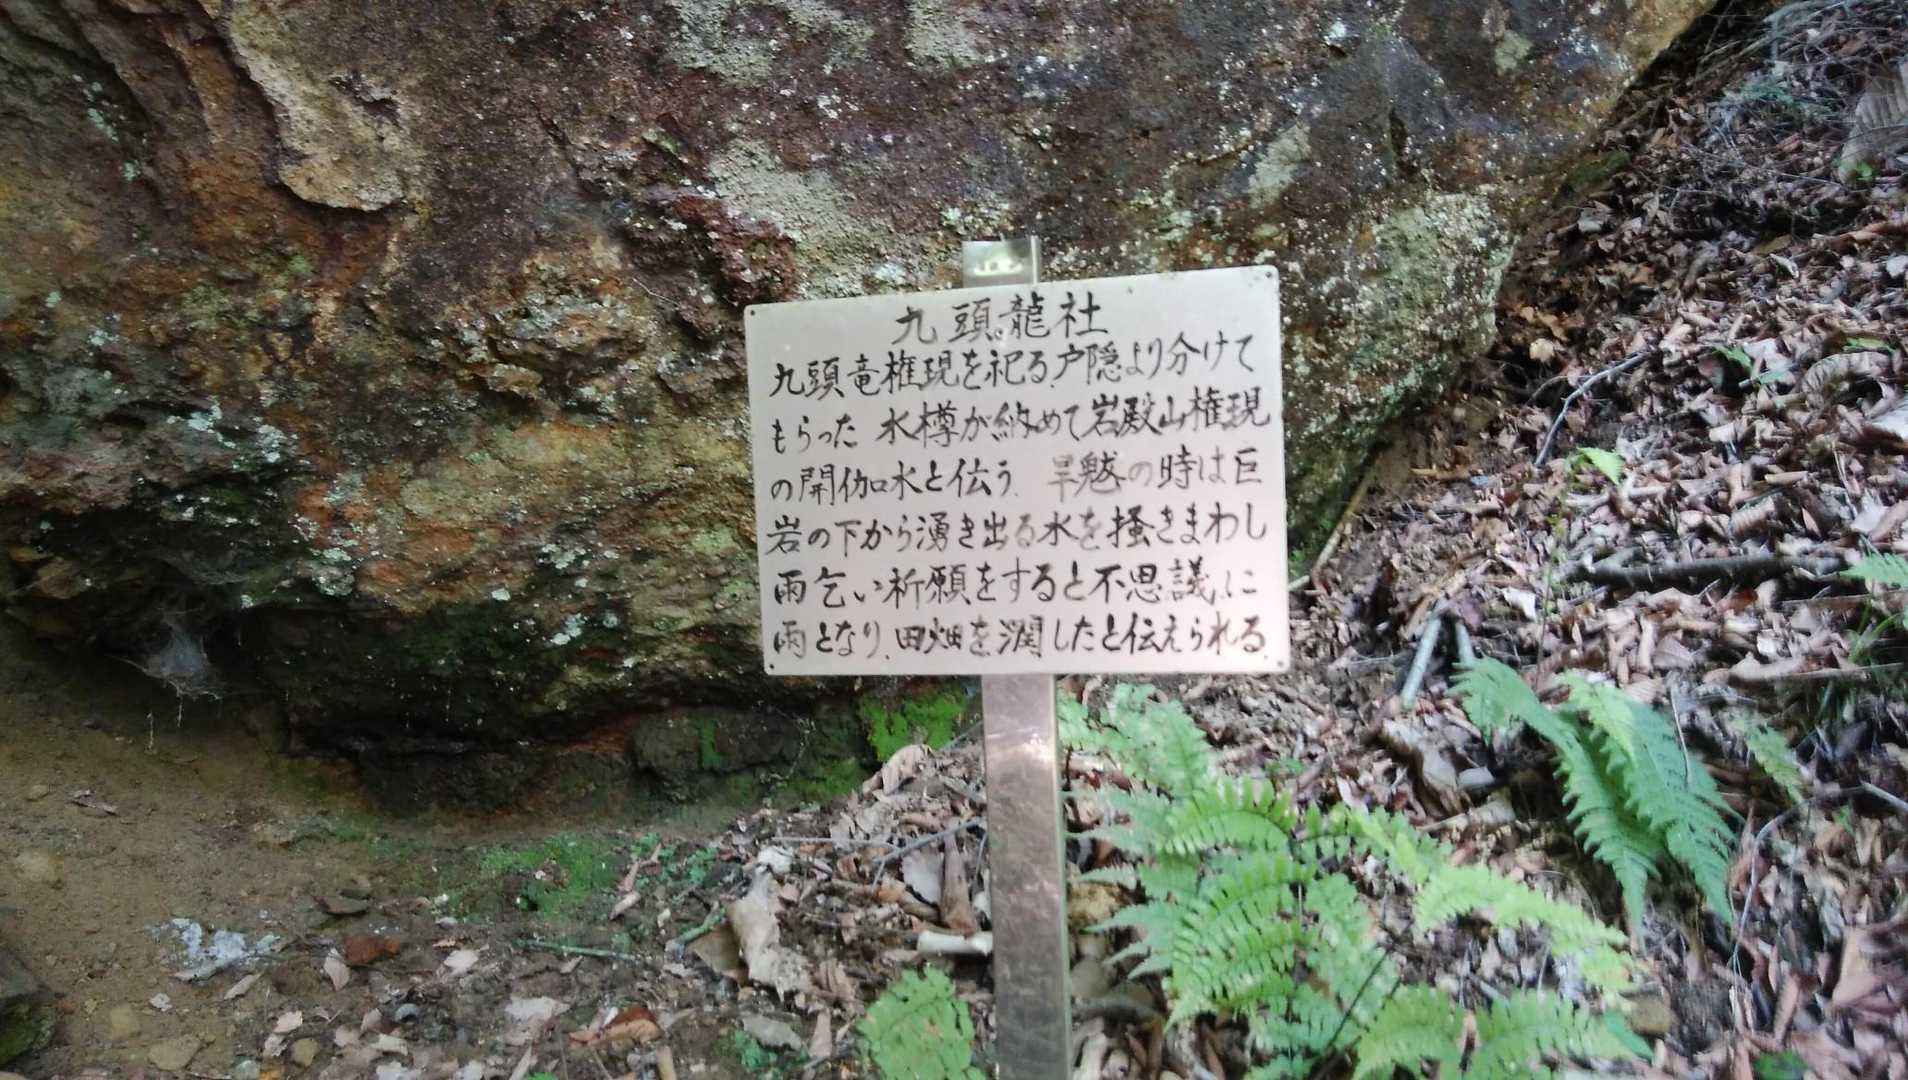 九頭龍社
九頭竜権現を祀る.戸隠より分けて
もらった 水樽が納めて岩殿山権現
の開伽水と伝う. 旱魃の時は巨
岩の下から湧き出る水を掻きまわし
雨乞い祈願をすると不思議に
雨となり.田畑を潤したと伝えられる.